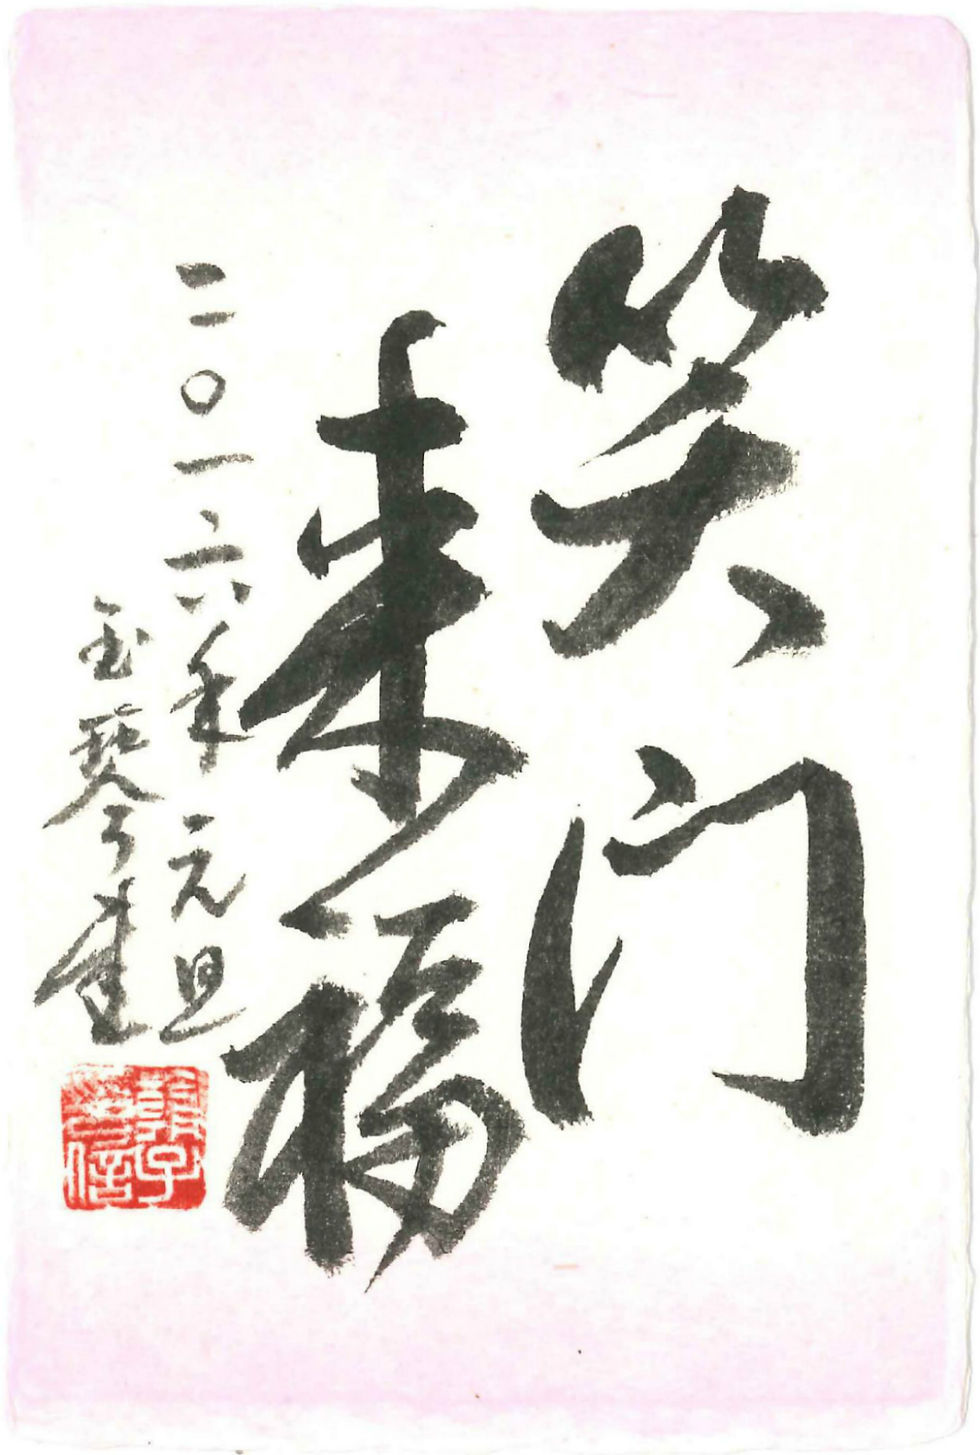 笑门
来福
二〇一六年 元旦
玉琴書